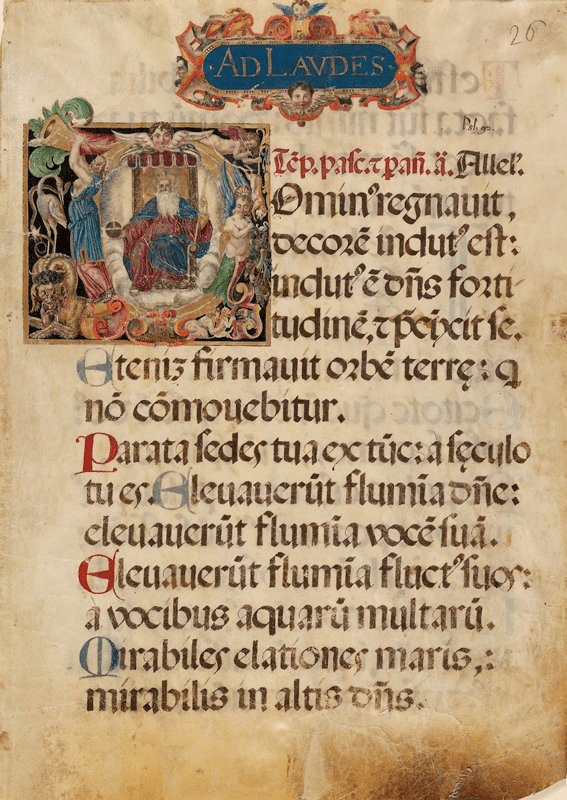 26
AD LAVDES
Psl. 92.
Tē̄p. pasc. ⁊ p añ. ā. Alleĺ.
Ominꝰ regnauit,
decorē indutꝰ est:
indutꝰ ē dn̄s forti-
tudinē, ⁊ p̄cīxit se.
Eteniꝫ firmauit orbē terrę: q
nō cōmouebitur.
Parata sedes tua ex tūc: a sęculo
tu es. Eleuauerūt flumīa dn̄e:
eleuauerūt flumīa vocē suā.
Eleuauerūt flumīa fluctꝰ suos:
a vocibus aquarū multarū.
Mirabiles elationes maris,:
mirabilis in altis dn̄s.